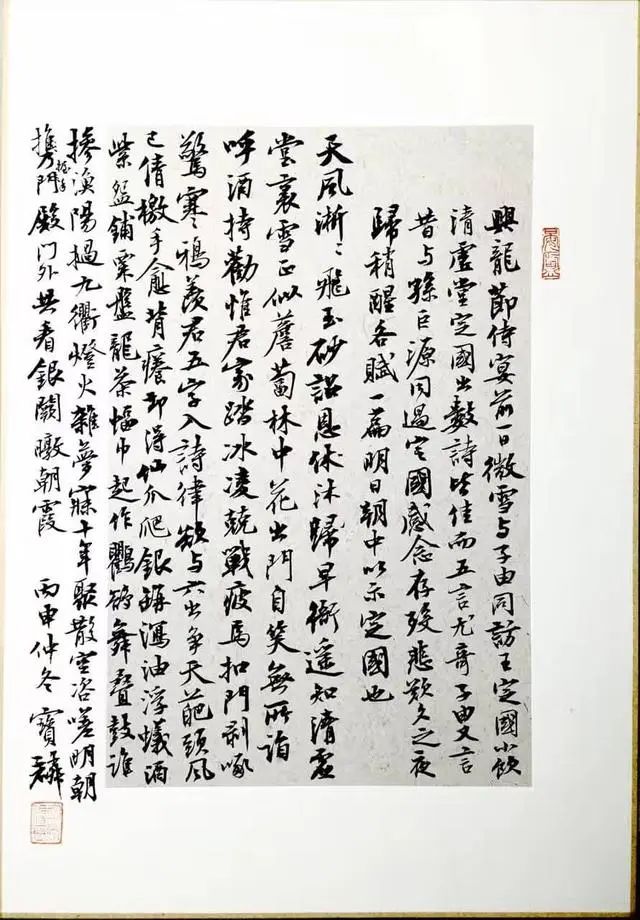 興龍節侍宴前一日微雪与子由同訪王定國小飲
清虛堂定國出數詩皆佳而五言尤奇子由又言
昔与孫巨源同過定國感念存歿悲歎久之夜
歸稍醒各賦一篇明日朝中以示定國也
天風淅〻飛玉砂詔恩休沐歸早衙遥知清虛
堂裏雪正似薝蔔林中花出門自笑無所詣
呼酒持勸惟君家踏冰凌兢戰疲馬扣門剥啄
驚寒鴉羨君五字入詩律欲与六出爭天葩頭風
已倩檄手愈背癢却得仙爪爬銀缾瀉油浮蟻酒
紫盌鋪粟盤龍茶幅巾起作鸜鵒舞疊鼓誰
摻漁陽撾九衢燈火雜夢寐十年聚散空咨嗟明朝
攜門握手殿门外共看銀闕暾朝霞 丙申仲冬 寶麟